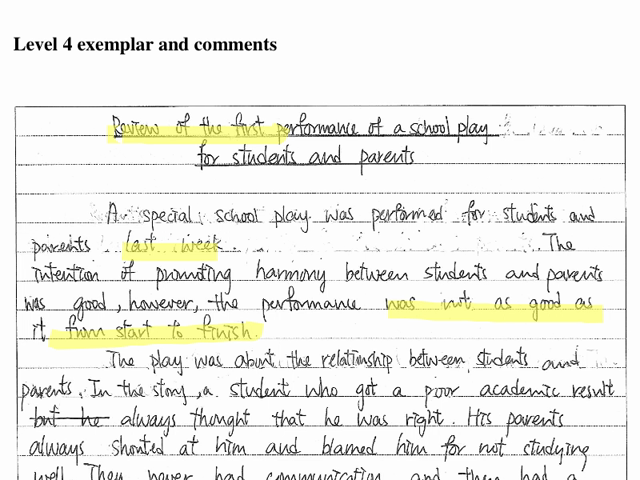 Level 4 exemplar and comments
Review of the first performance of a school play
for students and parents
A special school play was performed for students and
parents last week. The
intention of promoting harmony between students and parents
was good, however, the performance was not as good as
it from start to finish.
The play was about the relationship between students and
parents. In the story, a student who got a poor academic result
but he always thought that he was right. His parents
always shouted at him and blamed him for not studying
well. They never had communication and there had a